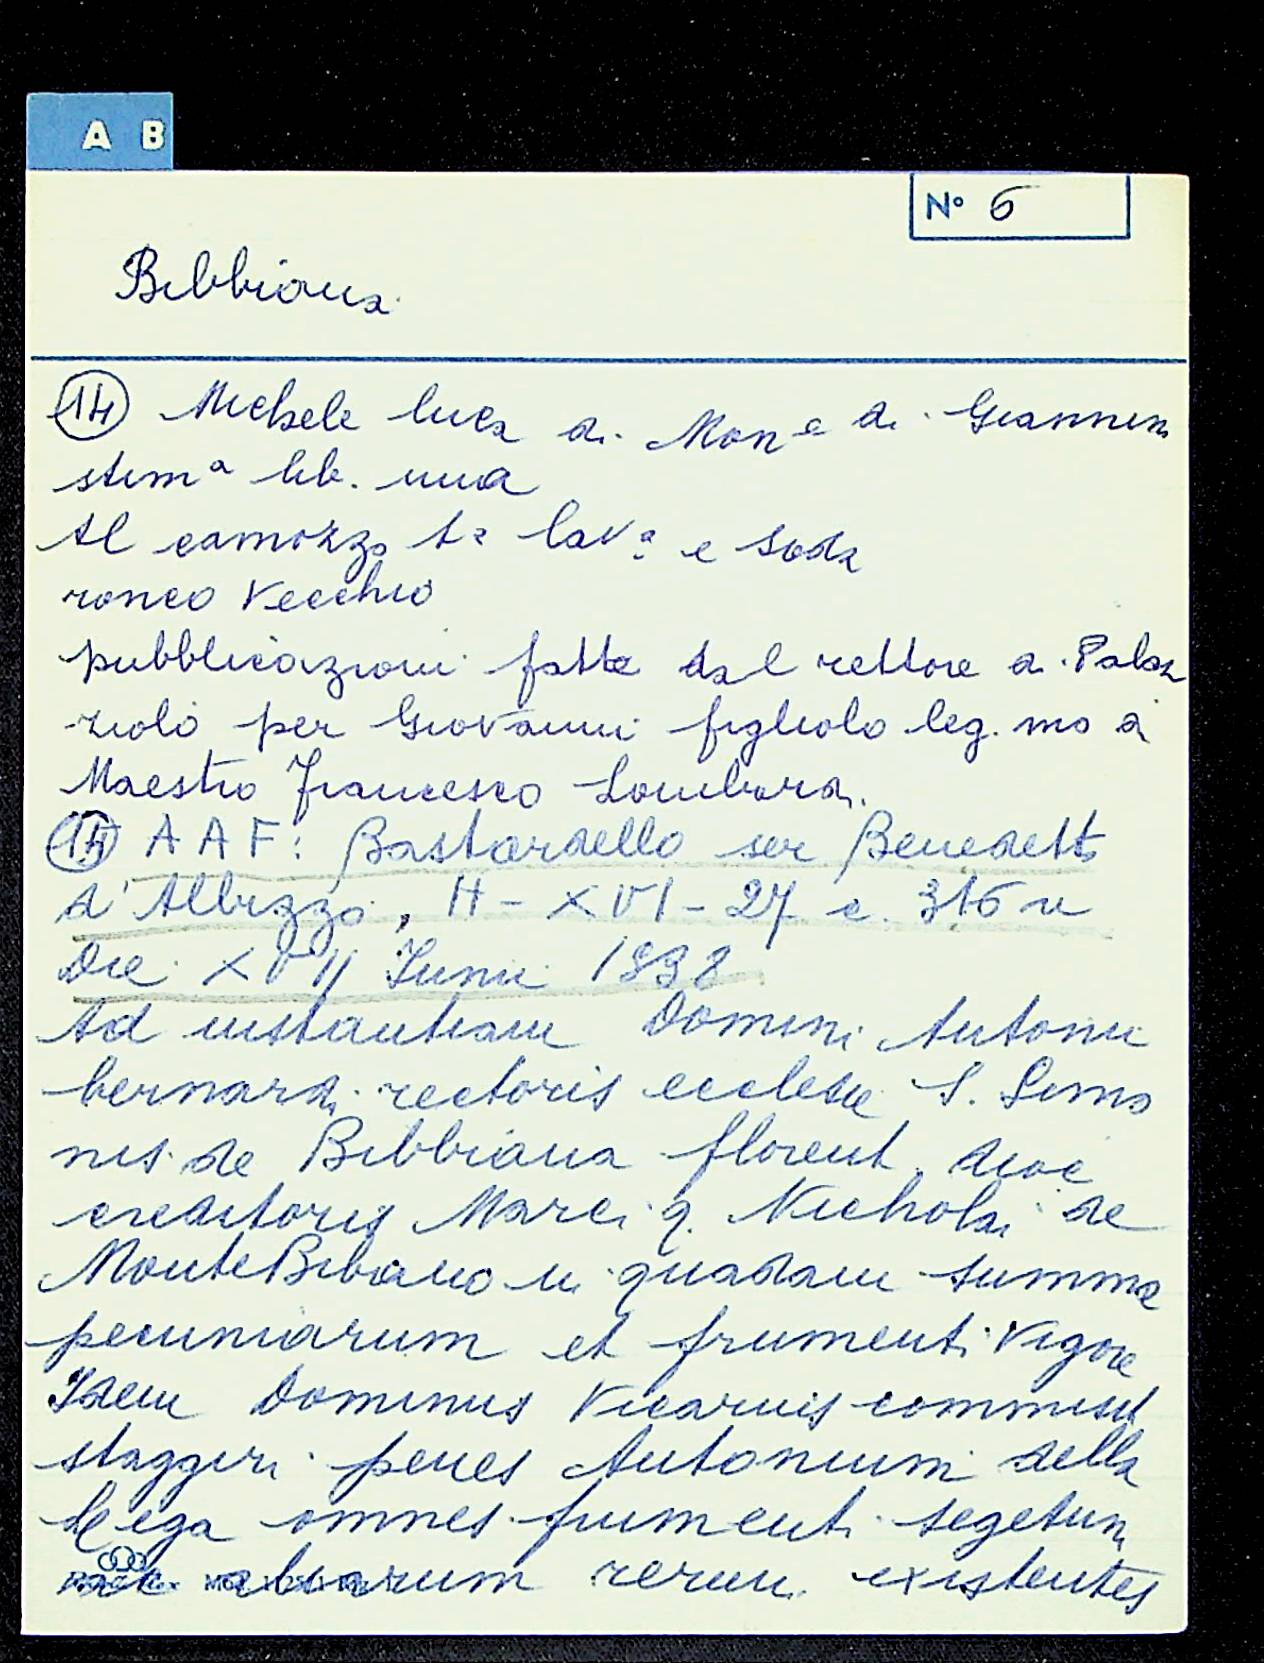 A B
N° 6
Bibbiana
(14) Michele luca di Mon e di Giannin
stim a lib. una
Al camozzo t a lav a e soda
ronco Vecchio
pubblicazioni fatte dal rettore di Palaz
zuolo per Giovanni figliolo leg. mo di
Maestro Francesco Lombardi.
(14) AAF: Bastardello ser Benedetto
d'Albizzo, H - XVI - 27 c. 316 v
Die XVII Junii
Ad instantiam Domini Antonii
bernardi rectoris ecclesie S. Simo
nis de Bibbiana florent. dioc
creditoris Marci q. Nicholai de
Monte Bibano in quadam summa
pecuniarum et frumenti Vigore
Idem Dominus Vicarius commisit
staggiri penes Antonium della
omnes frumenti segetum
aliarum rerum existentes